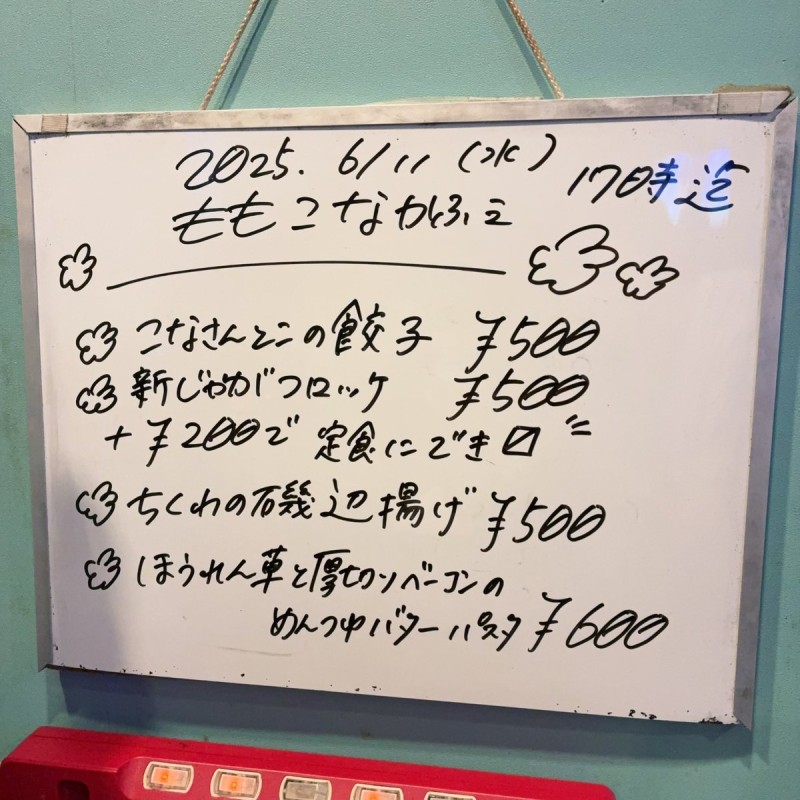 2025. 6/11 (水)
17時迄
ももこなかふぇ
こなさんとこの餃子 ¥500
新じゃがコロッケ ¥500
+¥200で 定食にでき〼
ちくわの磯辺揚げ ¥500
ほうれん草と厚切りベーコンの
めんつゆバターパスタ ¥600